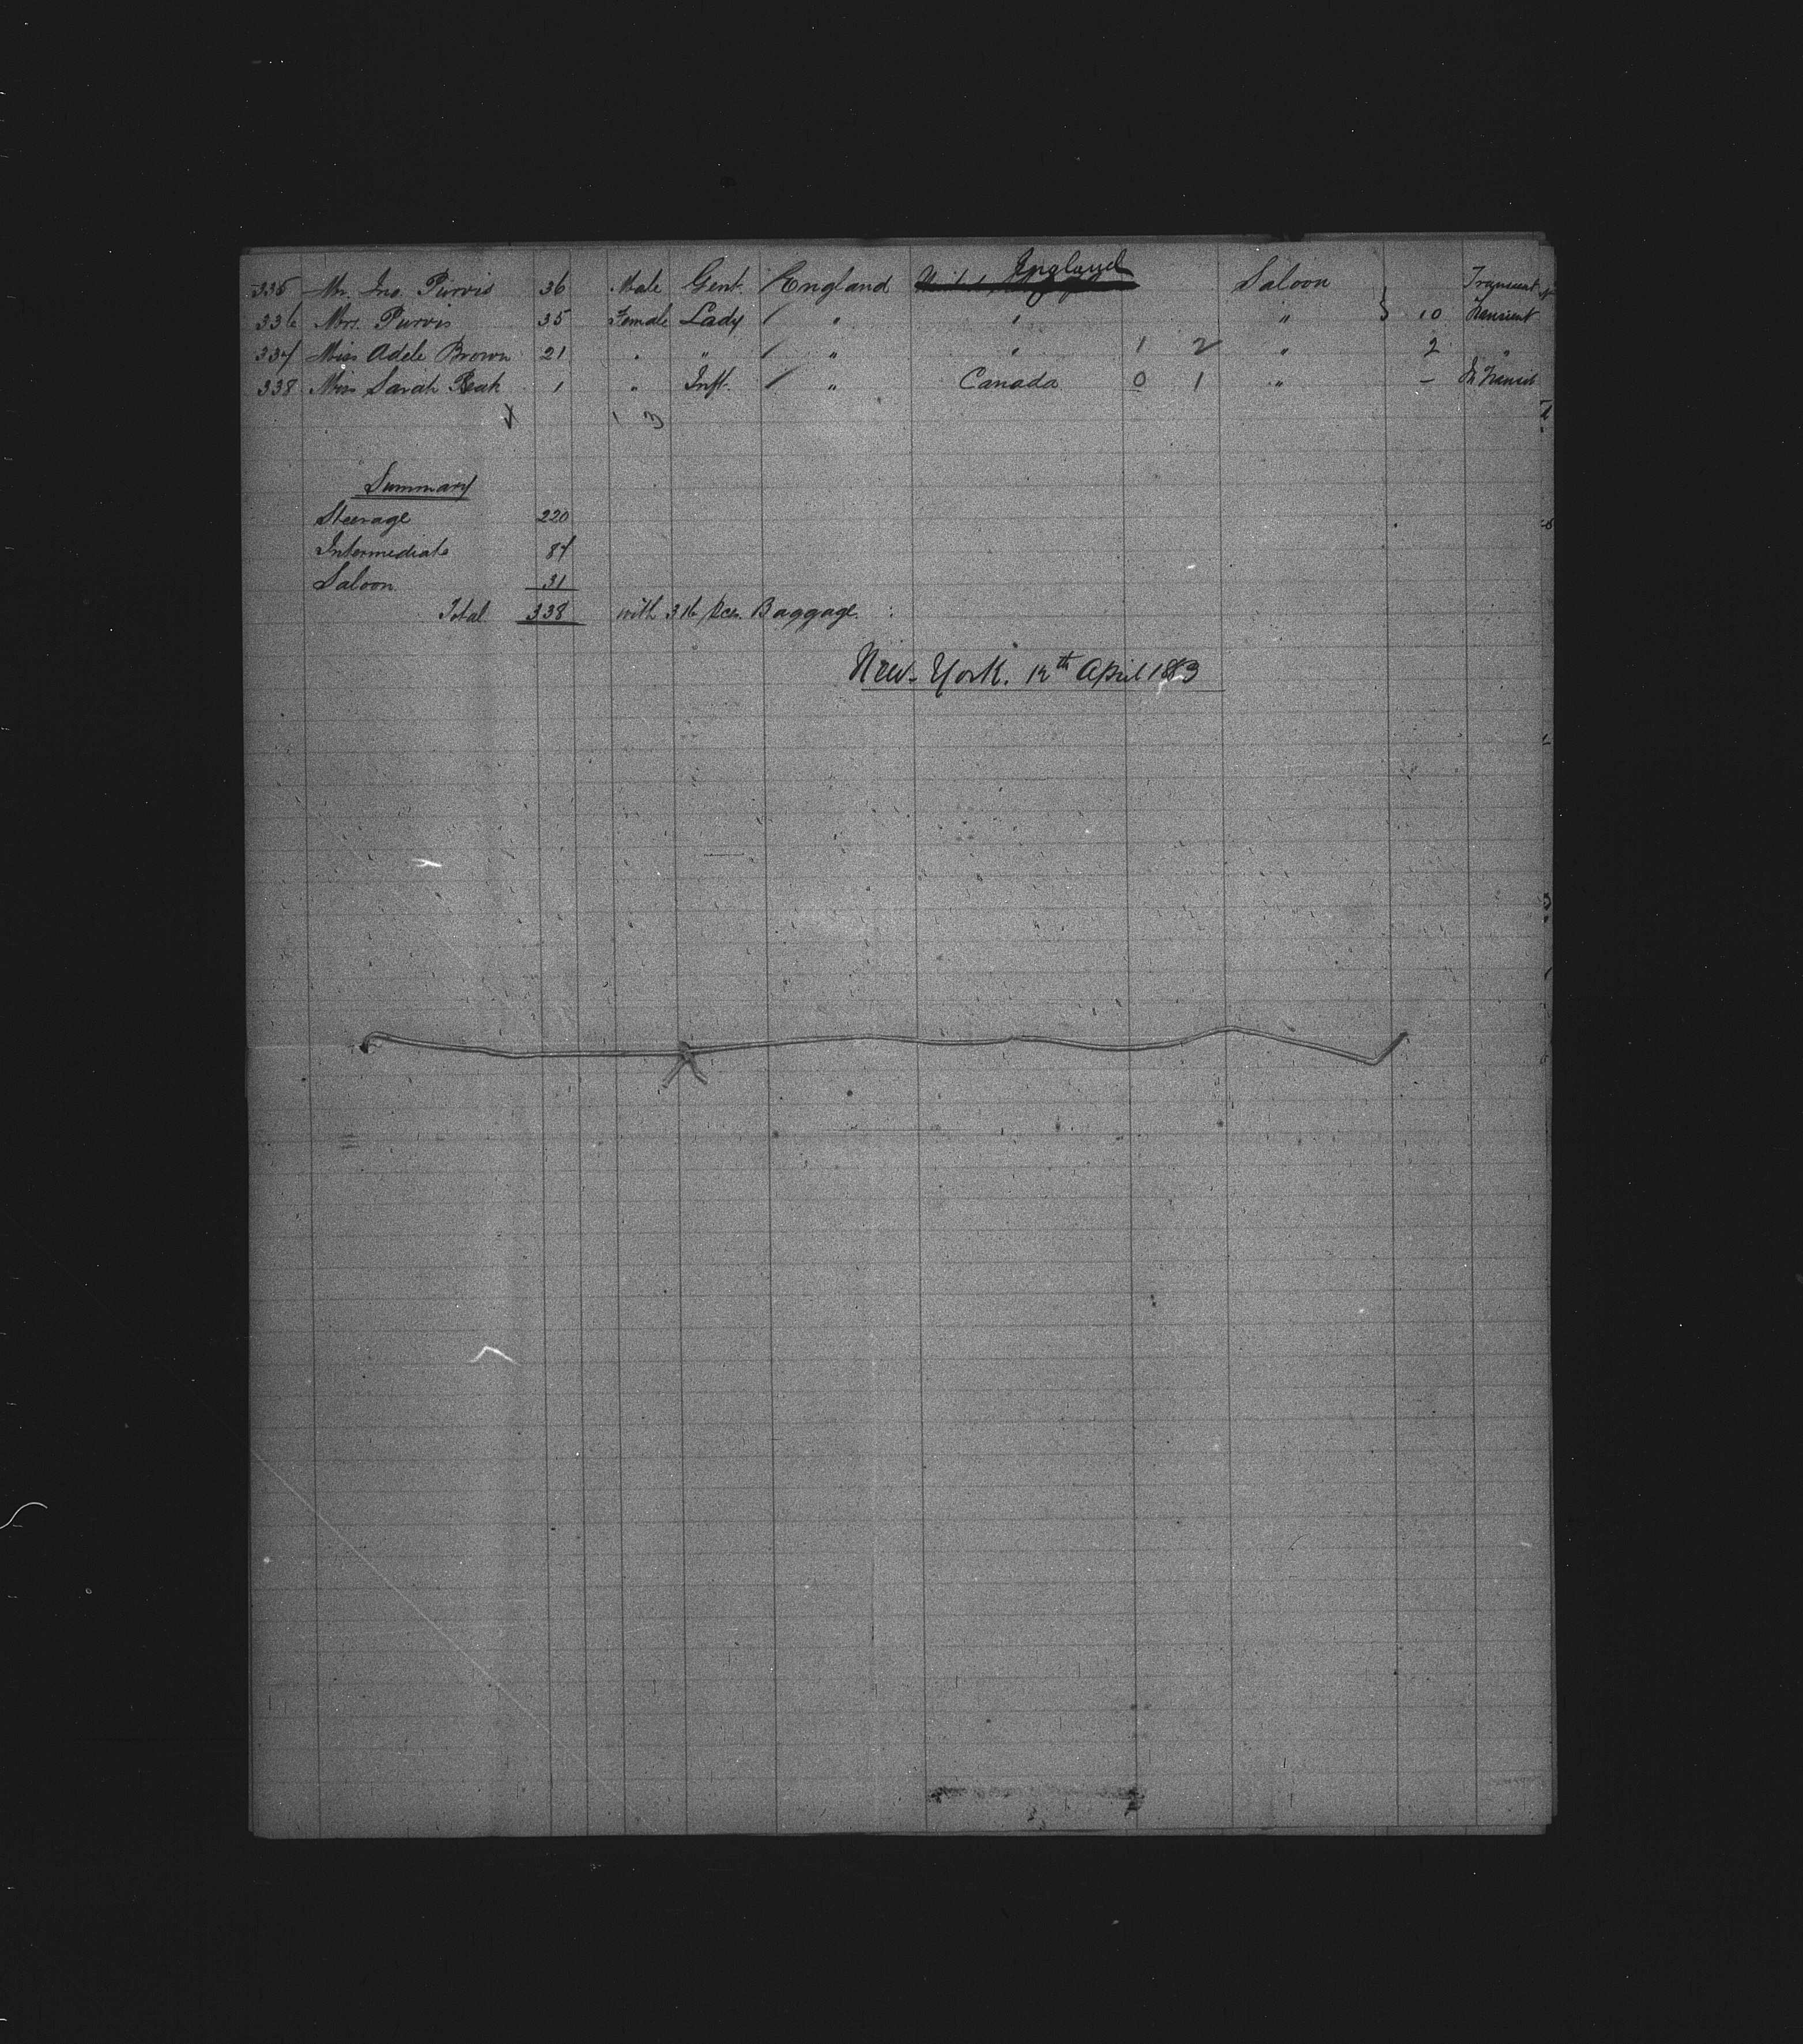 England
335 Mr. Jno. Purvis 36 Male Gent. England Saloon Transient
336 Mrs. Purvis 35 Female Lady / " " " } 10 Transient
337 Miss Adele Brown 21 " " / " " 1 2 " 2 "
338 Miss Sarah 1 " Inft. / " Canada 0 1 " – In Transit
1 3
Summary
Steerage 220
Intermediate 87
Saloon 31
Total 338 with 316 Pces. Baggage.
New-York. 12th April 1883